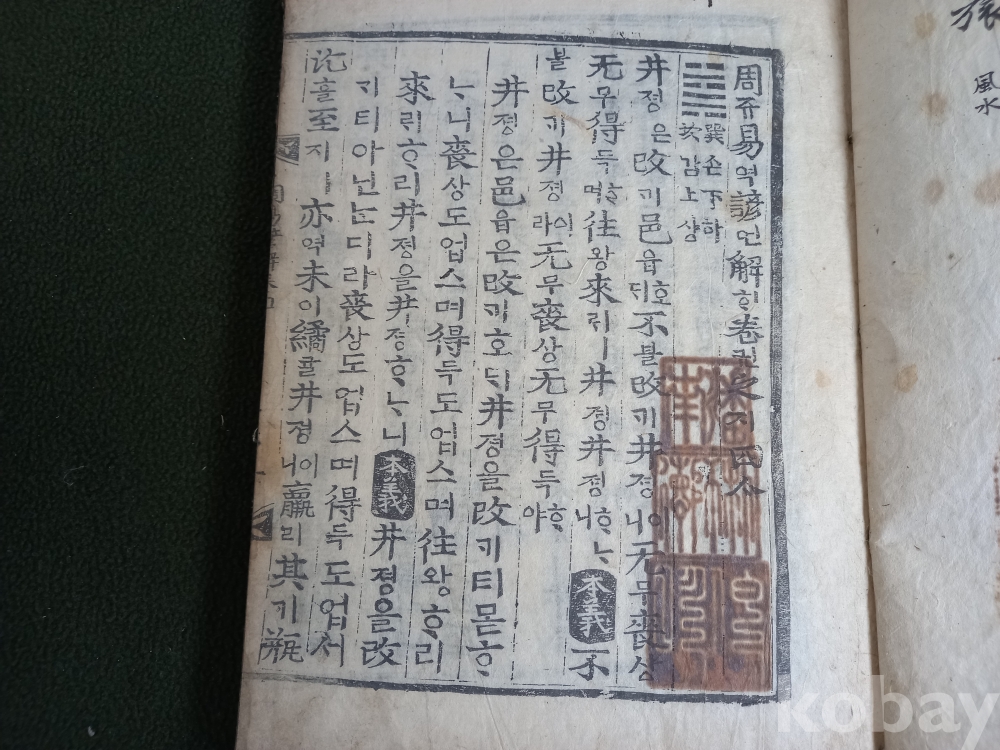 風水
周쥬易역諺언解ᄒᆡ卷권之지四ᄉᆞ
䷯ 巽손下하
坎감上샹
井졍은改ᄀᆡ邑읍호ᄃᆡ不블改ᄀᆡ井졍이니无무喪상
无무得득ᄒᆞ며往왕來ᄅᆡㅣ井졍井졍ᄒᆞᄂᆞ니本義不
블改ᄀᆡ井졍이라无무喪상无무得득ᄒᆞ야
井졍은邑읍은改ᄀᆡ호ᄃᆡ井졍을改ᄀᆡ티몯ᄒᆞ
ᄂᆞ니喪상도업스며得득도업스며往왕ᄒᆞ리
來ᄅᆡᄒᆞ리井졍을井졍ᄒᆞᄂᆞ니本義井졍을改
ᄀᆡ티아닌ᄂᆞᆫ디라喪상도업스며得득도업서
汔흘至지ㅣ亦역未미繘귤井졍이니羸리其기甁
kobay